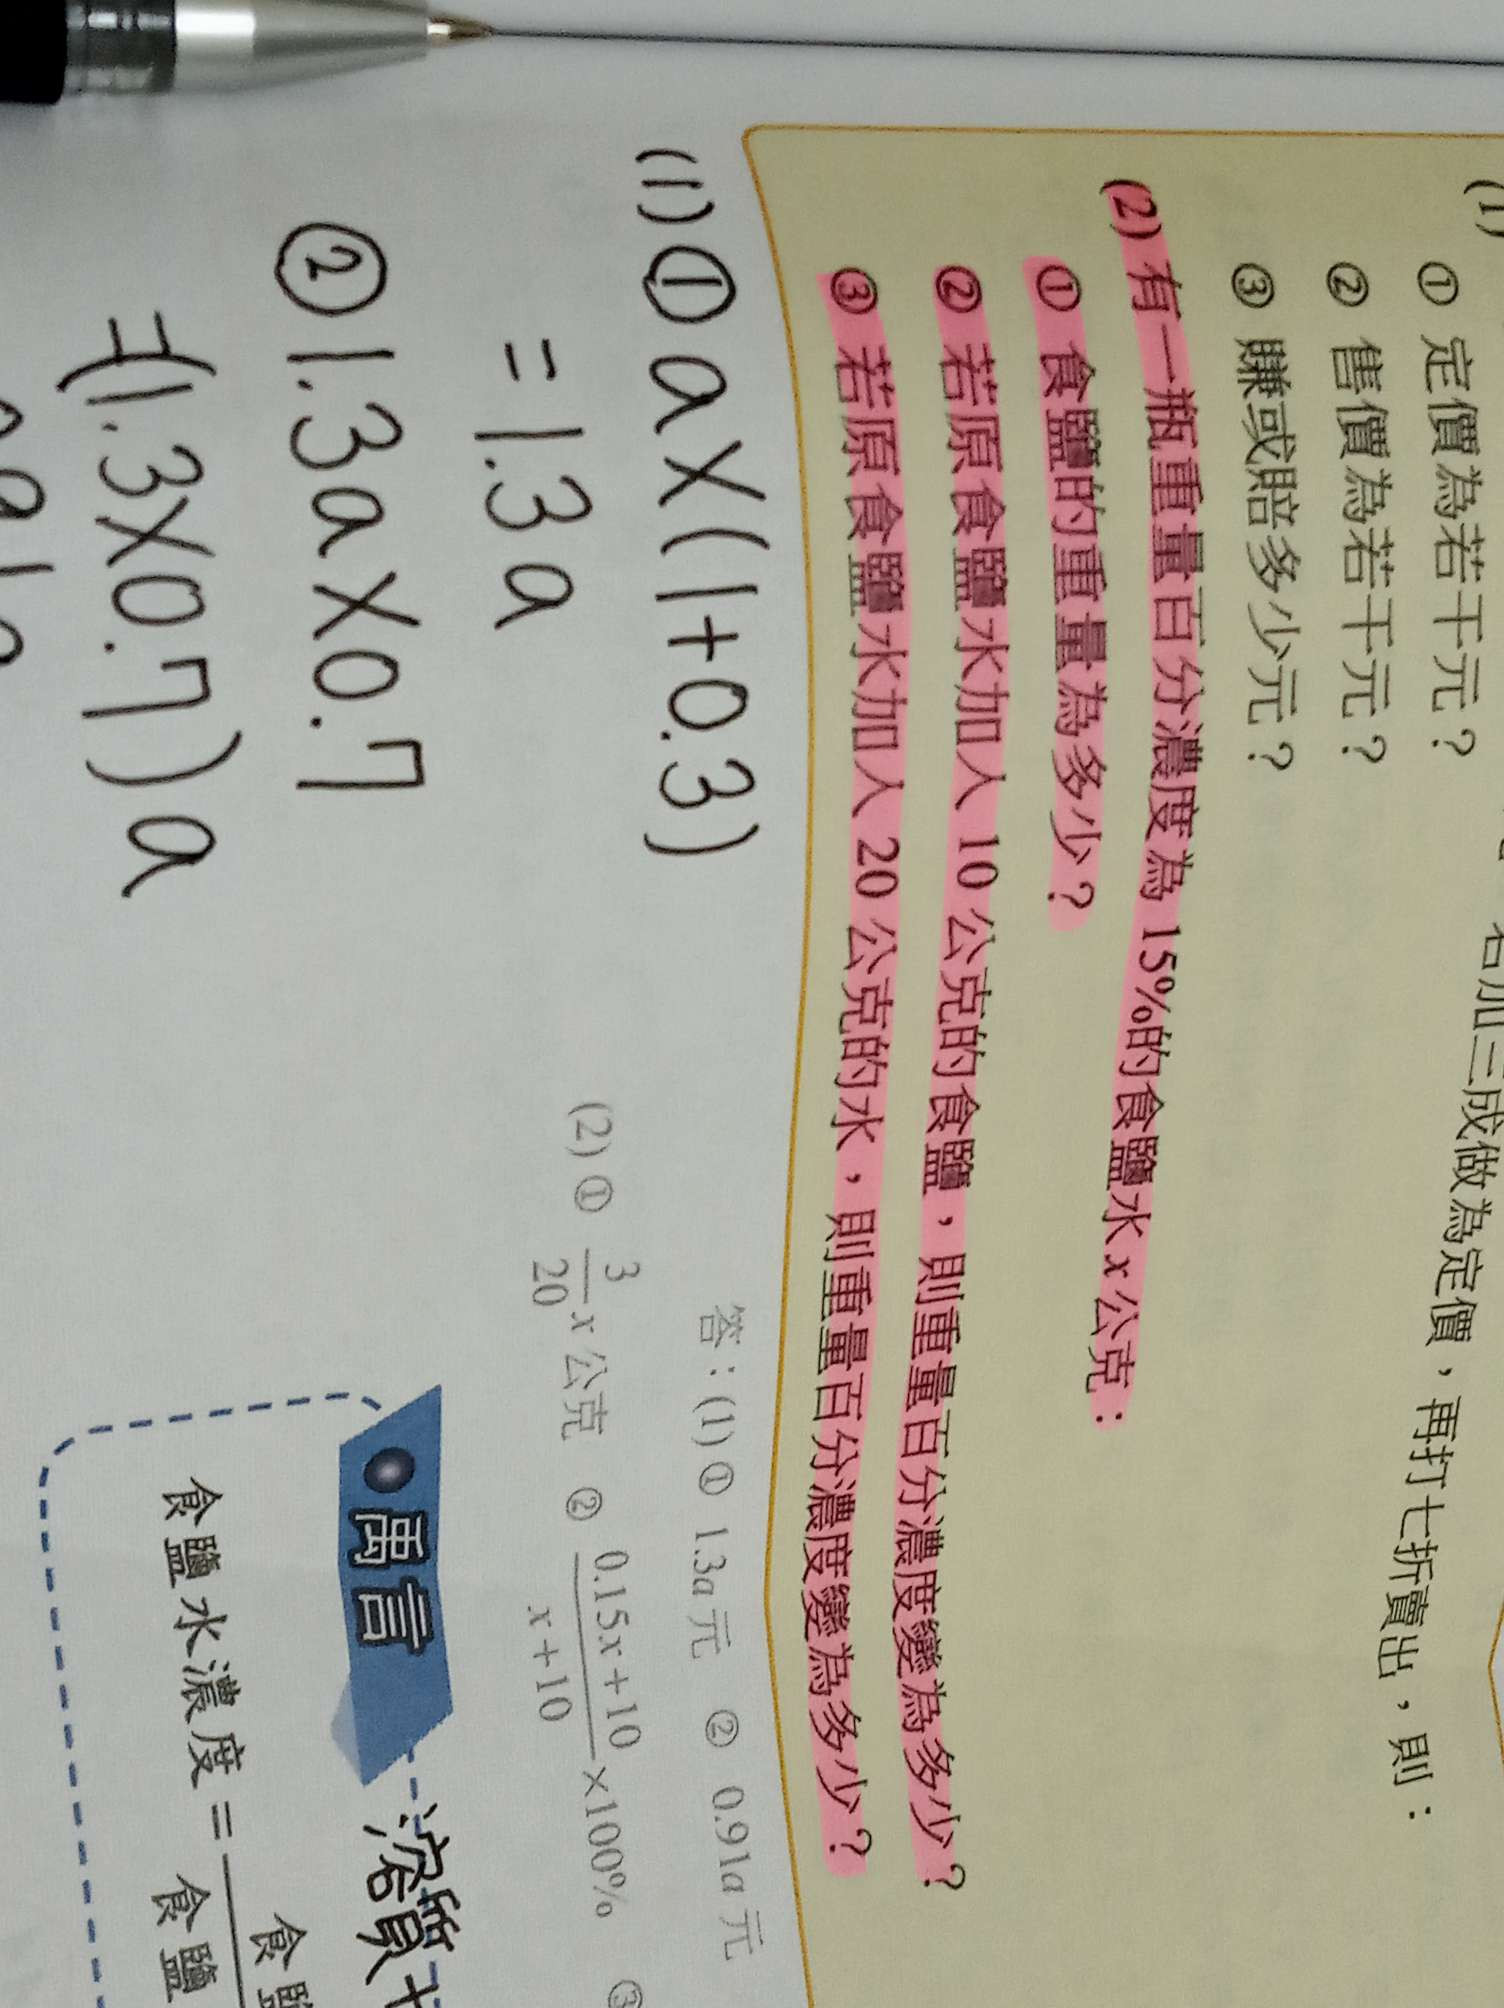 (1)
若加三成做為定價，再打七折賣出，則：
① 定價為若干元？
② 售價為若干元？
③ 賺或賠多少元？
(2) 有一瓶重量百分濃度為 15%的食鹽水 x 公克：
① 食鹽的重量為多少？
② 若原食鹽水加入 10 公克的食鹽，則重量百分濃度變為多少？
③ 若原食鹽水加入 20 公克的水，則重量百分濃度變為多少？
答：(1) ① 1.3a 元 ② 0.91a 元 ③
(2) ① 3/20 x 公克 ② (0.15x+10)/(x+10) ×100%
(1) ① a×(1+0.3)
=1.3a
② 1.3a×0.7
=(1.3×0.7)a
溶質
食鹽水濃度= 食鹽
食鹽